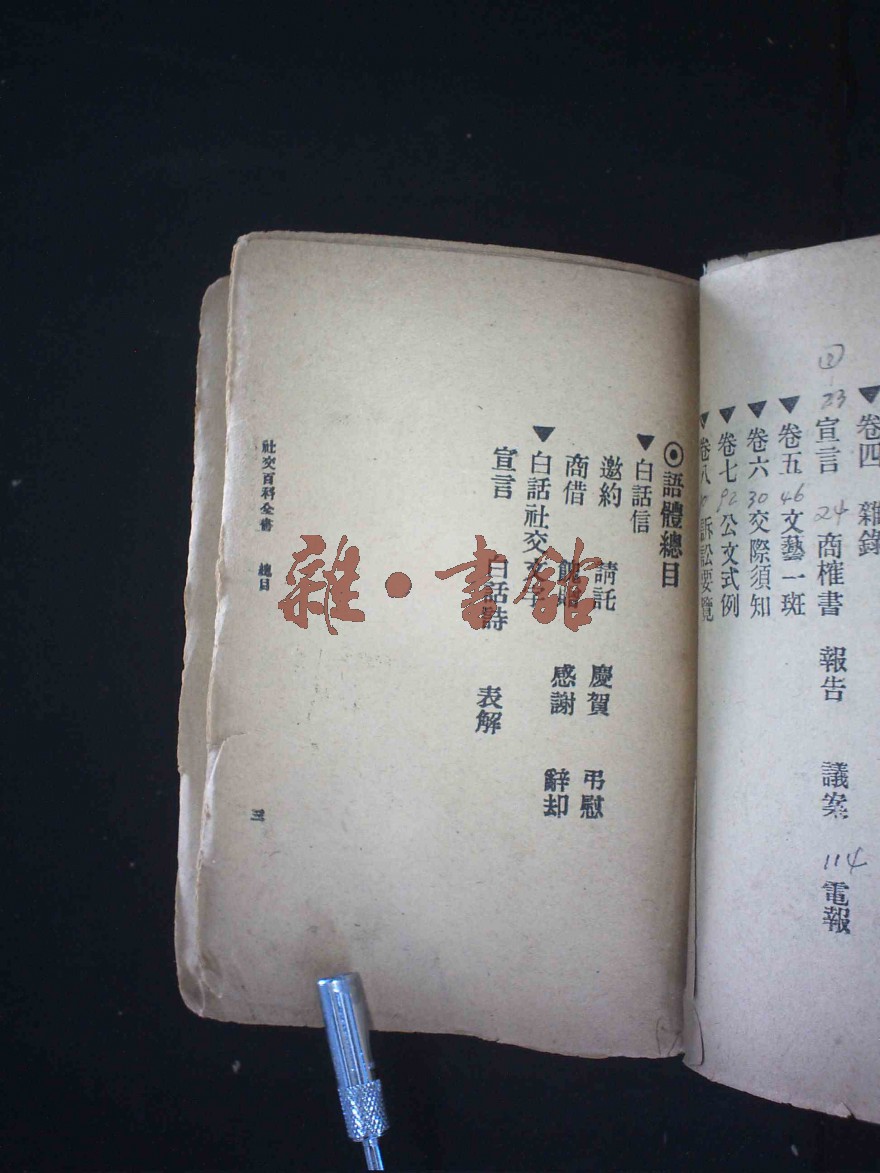 ▼卷四 雜錄
④ 23 宣言 24 商榷書 報告 議案 114 電報
▼卷五 46 文藝一斑
▼卷六 30 交際須知
▼卷七 92 公文式例
▼卷八 訴訟要覽
◉語體總目
▼白話信
邀約 請託 慶賀 弔慰
商借 餽贈 感謝 辭却
▼白話社交文字
宣言 白話詩 表解
社交百科全書 總目
三
雜·書館